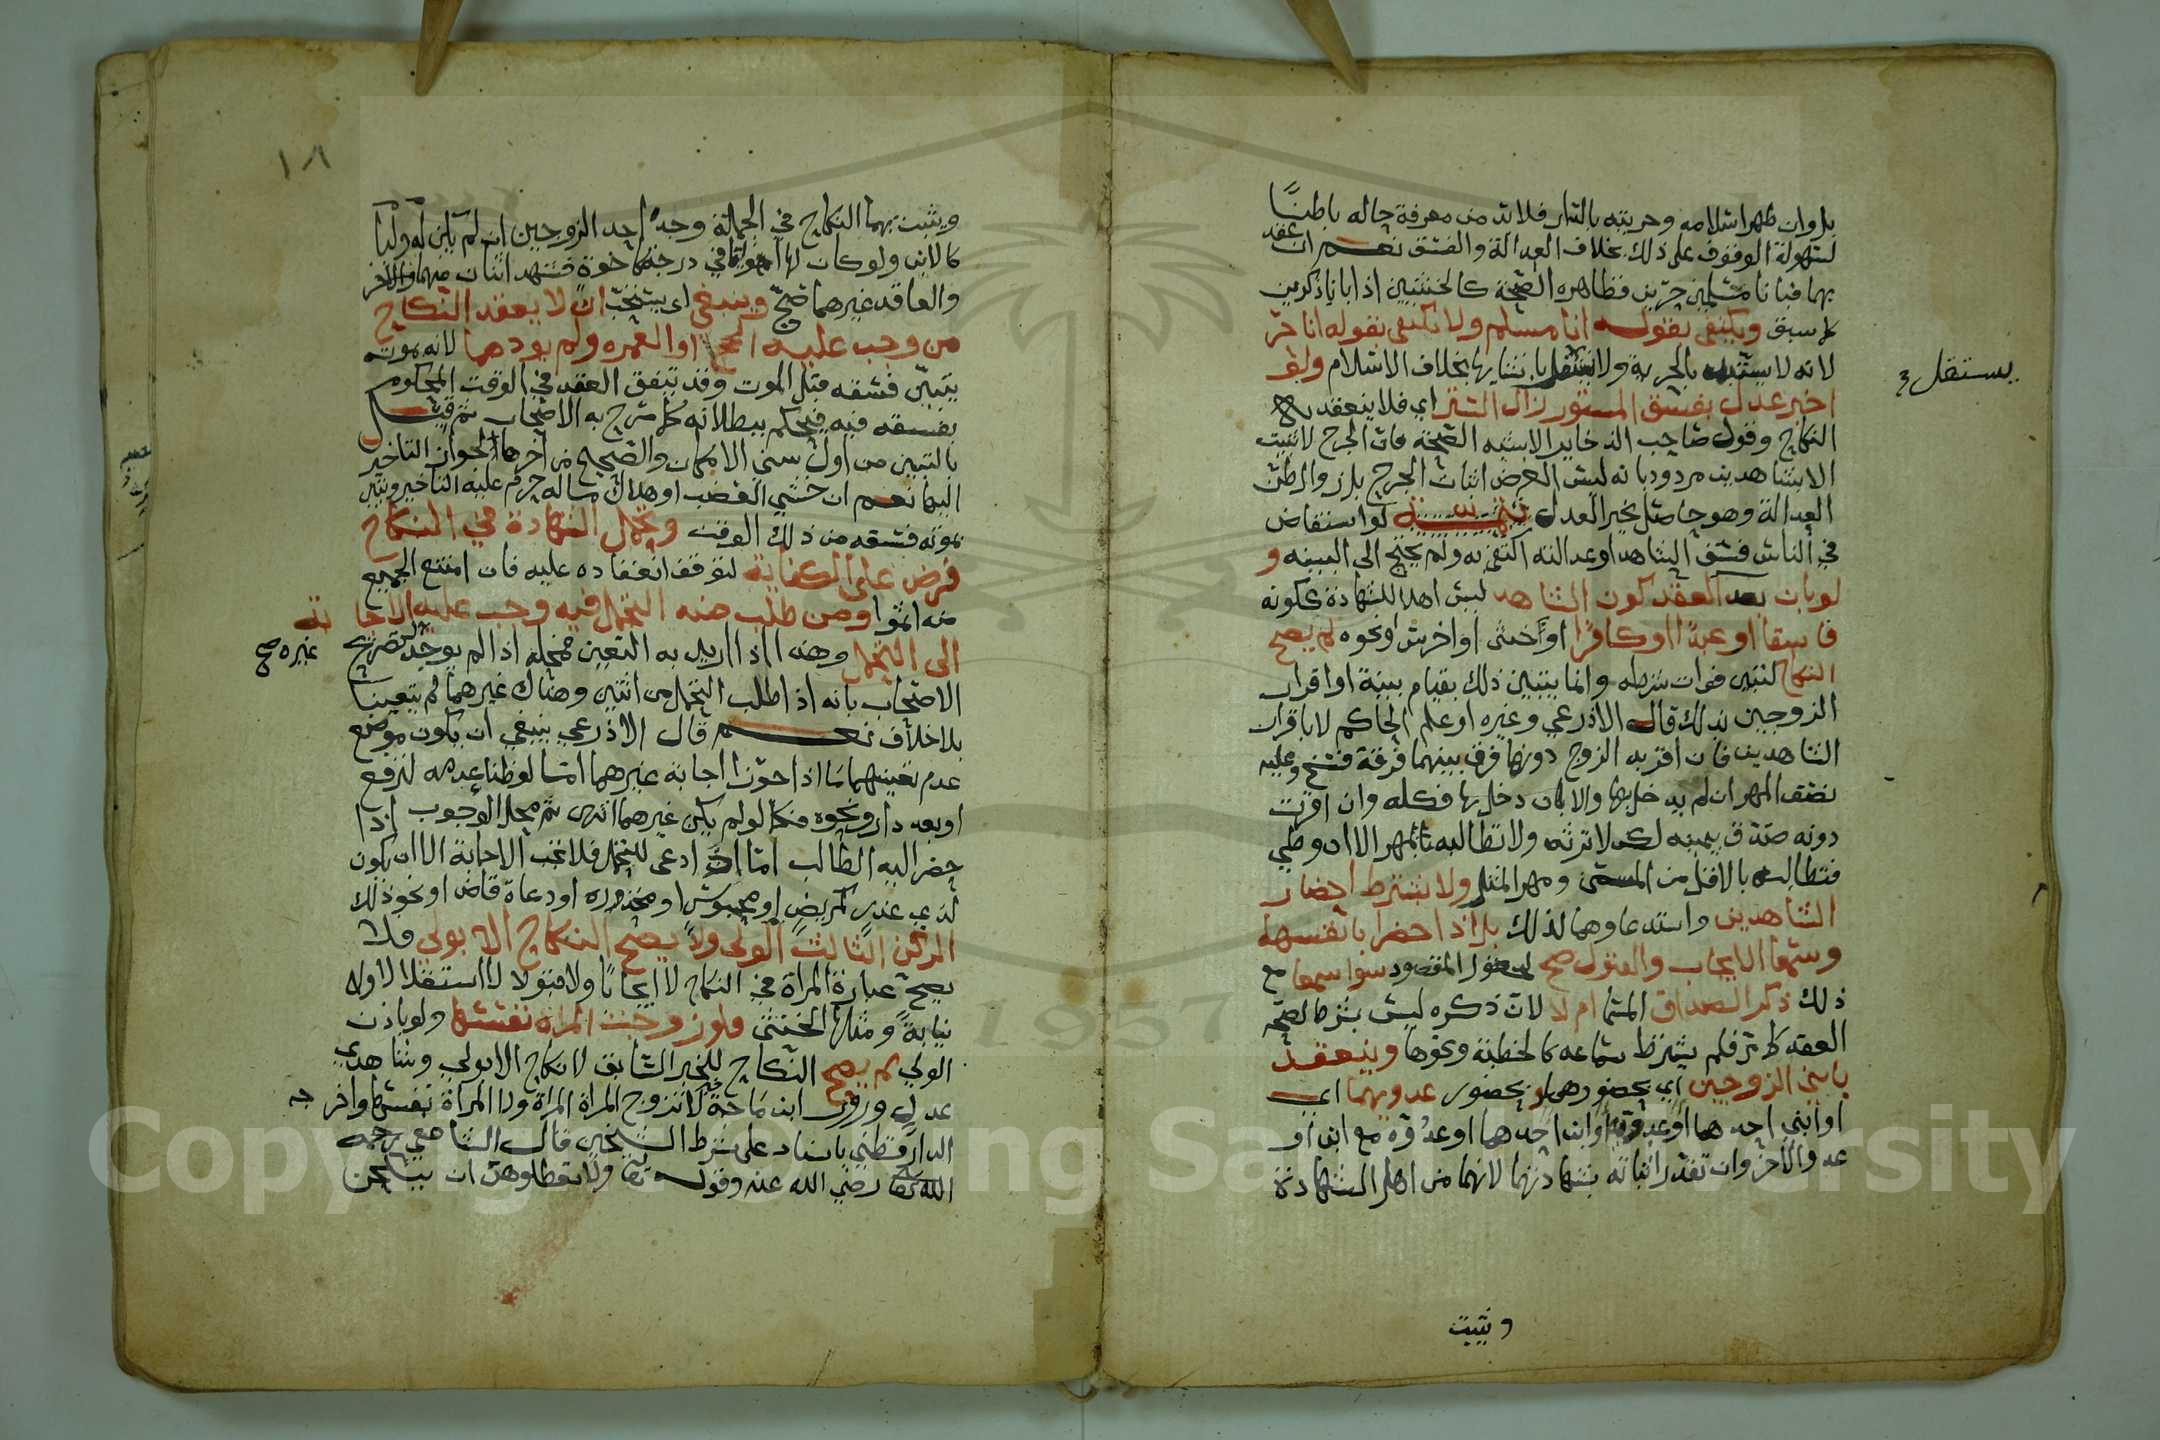 بل وان ظهر اسلامه وحريته بالدار فلابد من معرفة حاله باطنًا
لسهولة الوقوف على ذلك بخلاف العدالة والفسق نعم ان عقد
بهما فبانا مسلمين حرين فظاهره الصحة كالخنثيين اذا بانا ذكرين
كما سبق ويكتفى بقوله انا مسلم ولا يكتفى بقوله انا حر
لانه لا يستبد بالحرية ولا يستقل بانشايها بخلاف الاسلام ولو
يستقل
اخبر عدل بفسق المستور زال الستر اي فلا ينعقد به
النكاح وقول صاحب الذخاير الاشبه الصحة فان الجرح لا يثبت
الا بشاهدين مردود بانه ليس الغرض اثبات الجرح بل زوال ظن
العدالة وهو حاصل بخبر العدل تنبيه لو استفاض
في الناس فسق الشاهد او عدالته اكتفي به ولم يحتج الى البينه و
لو بان بعد العقد كون الشاهد ليس اهلا للشهادة ككونه
فاسقا او عبدًا او كافرًا او خنثى او اخرس او نحوه لم يصح
النكاح لتبين فوات شرطه وانما يتبين ذلك بقيام بينة او اقرار
الزوجين بذلك قاله الاذرعي وغيره او علم الحاكم لا باقرار
الشاهدين فان اقر به الزوج دونها فرق بينهما فرقة فسخ وعليه
نصف المهر ان لم يدخل بها والا بان دخل بها فكله وان اقرت
دونه صدق بيمينه لكن لا ترثه ولا تطالبه بالمهر الا ان وطي
فتطالبه بالاقل من المسمى ومهر المثل ولا يشترط احضار
الشاهدين واستدعاوهما لذلك بل اذا حضرا بانفسهما
وسمعا الايجاب والقبول صح لحصول المقصود سوا سمعا مع
ذلك ذكر الصداق المسمى ام لا لان ذكره ليس بشرط لصحة
العقد كما مر فلم يشترط سماعه كالخطبة ونحوها وينعقد
بابني الزوجين اي بحضورهما وبحضور عدويهما اي
او ابني احدهما او عدويه او ابن احدهما او عدوه مع ابن او
عدو الاخر وان تعذر اثباته بشهادتهما لانهما من اهل الشهادة
ويثبت
١٨
ويثبت بهما النكاح في الجملة وجد احد الزوجين ان لم يكن له وليًا
كالابن ولو كان لها اخوة في درجة كاخوة فشهد اثنان منهما والاخر
والعاقد غيرهما صح وينبغي اي يستحب ان لا يعقد النكاح
من وجب عليه الحج او العمره ولم يودهما لانه بموته
يتبين فسقه قبل الموت وقد يتفق العقد في الوقت المحكوم
بفسقه فيه فيحكم ببطلانه كما صرح به الاصحاب ثم قيل
بالتبين من اول سني الامكان والصحيح من آخرها لجواز التاخير
اليها نعم ان خشي العضب او هلاك ماله حرم عليه التاخير وتبين
بموته فسقه من ذلك الوقت وتحمل الشهادة في النكاح
فرض على الكفاية لتوقف انعقاده عليه فان امتنع الجميع
منه اثموا ومن طلب منه التحمل فيه وجب عليه الاجابة
الى التحمل وهذا اذا اريد به التعين فمحله اذا لم يوجد لتصريح
غيره صح
الاصحاب بانه اذا طلب التحمل من اثنين وهناك غيرهما لم يتعينا
بلا خلاف نعم قال الاذرعي ينبغي ان يكون موضع
عدم تعينهما ما اذا جوزا اجابة غيرهما اما لو ظنا عدمه لترفع
او بعد دار ونحوه فكما لو لم يكن غيرهما انتهى ثم محل الوجوب اذا
حضر اليه الطالب اما اذا ادعى للتحمل فلا تجب الاجابة الا ان يكون
لذي عذر كمريض او محبوس او مخدوره او دعاه قاض او نحو ذلك
الركن الثالث الولي ولا يصح النكاح الا بولي فلا
يصح عبارة المراة في النكاح لا ايجابًا ولا قبولا لا استقلالا ولا
نيابة ومثلها الخنثى فلو زوجت المراة نفسها ولو باذن
الولي لم يصح النكاح للخبر السابق لا نكاح الا بولي وشاهدي
عدل وروى ابن ماجة خبر لا تزوج المراة المراة ولا المراة نفسها واخرجه
الدارقطني باسناد على شرط الشيخين قال الشافعي رحمه
الله تعالى رضي الله عنه وقوله تعالى ولا تعضلوهن ان ينكحن